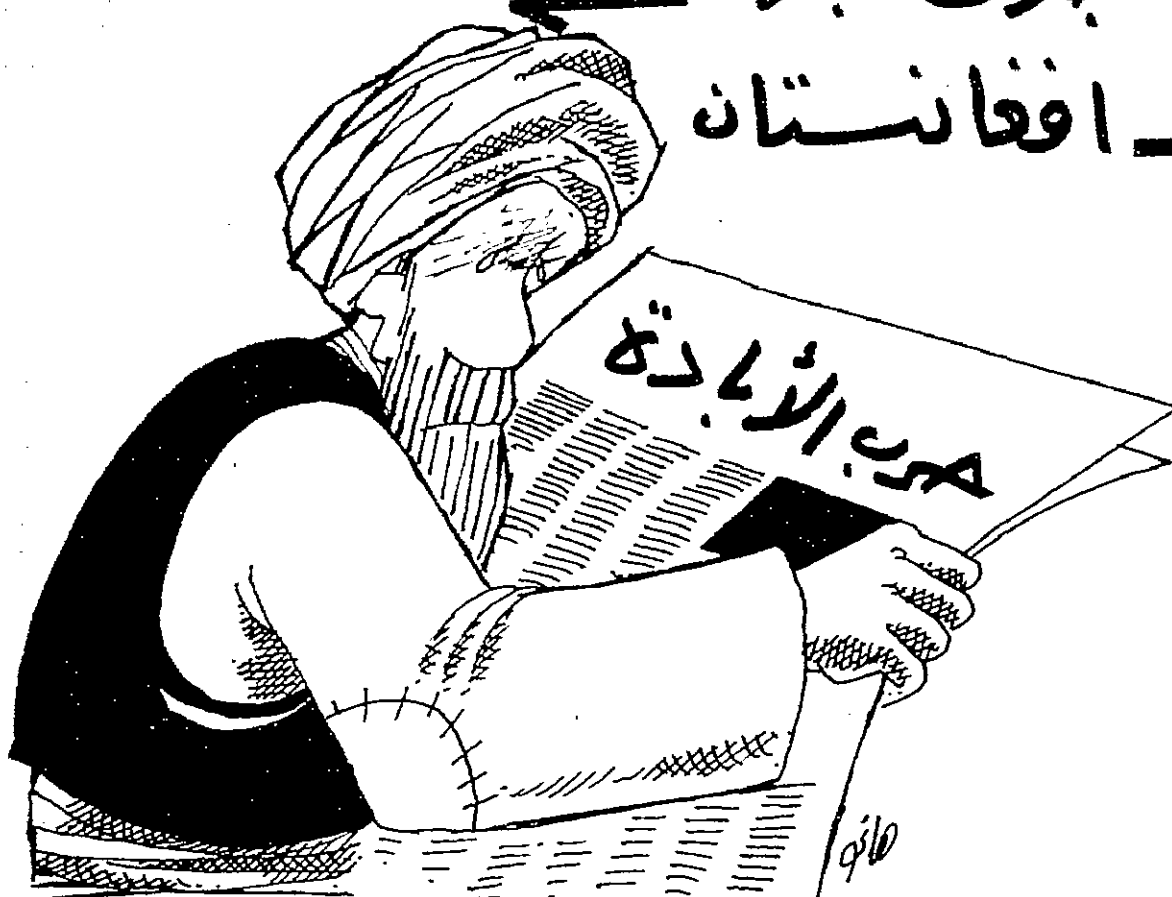 افغانستان
حرب الأبادة
هاني